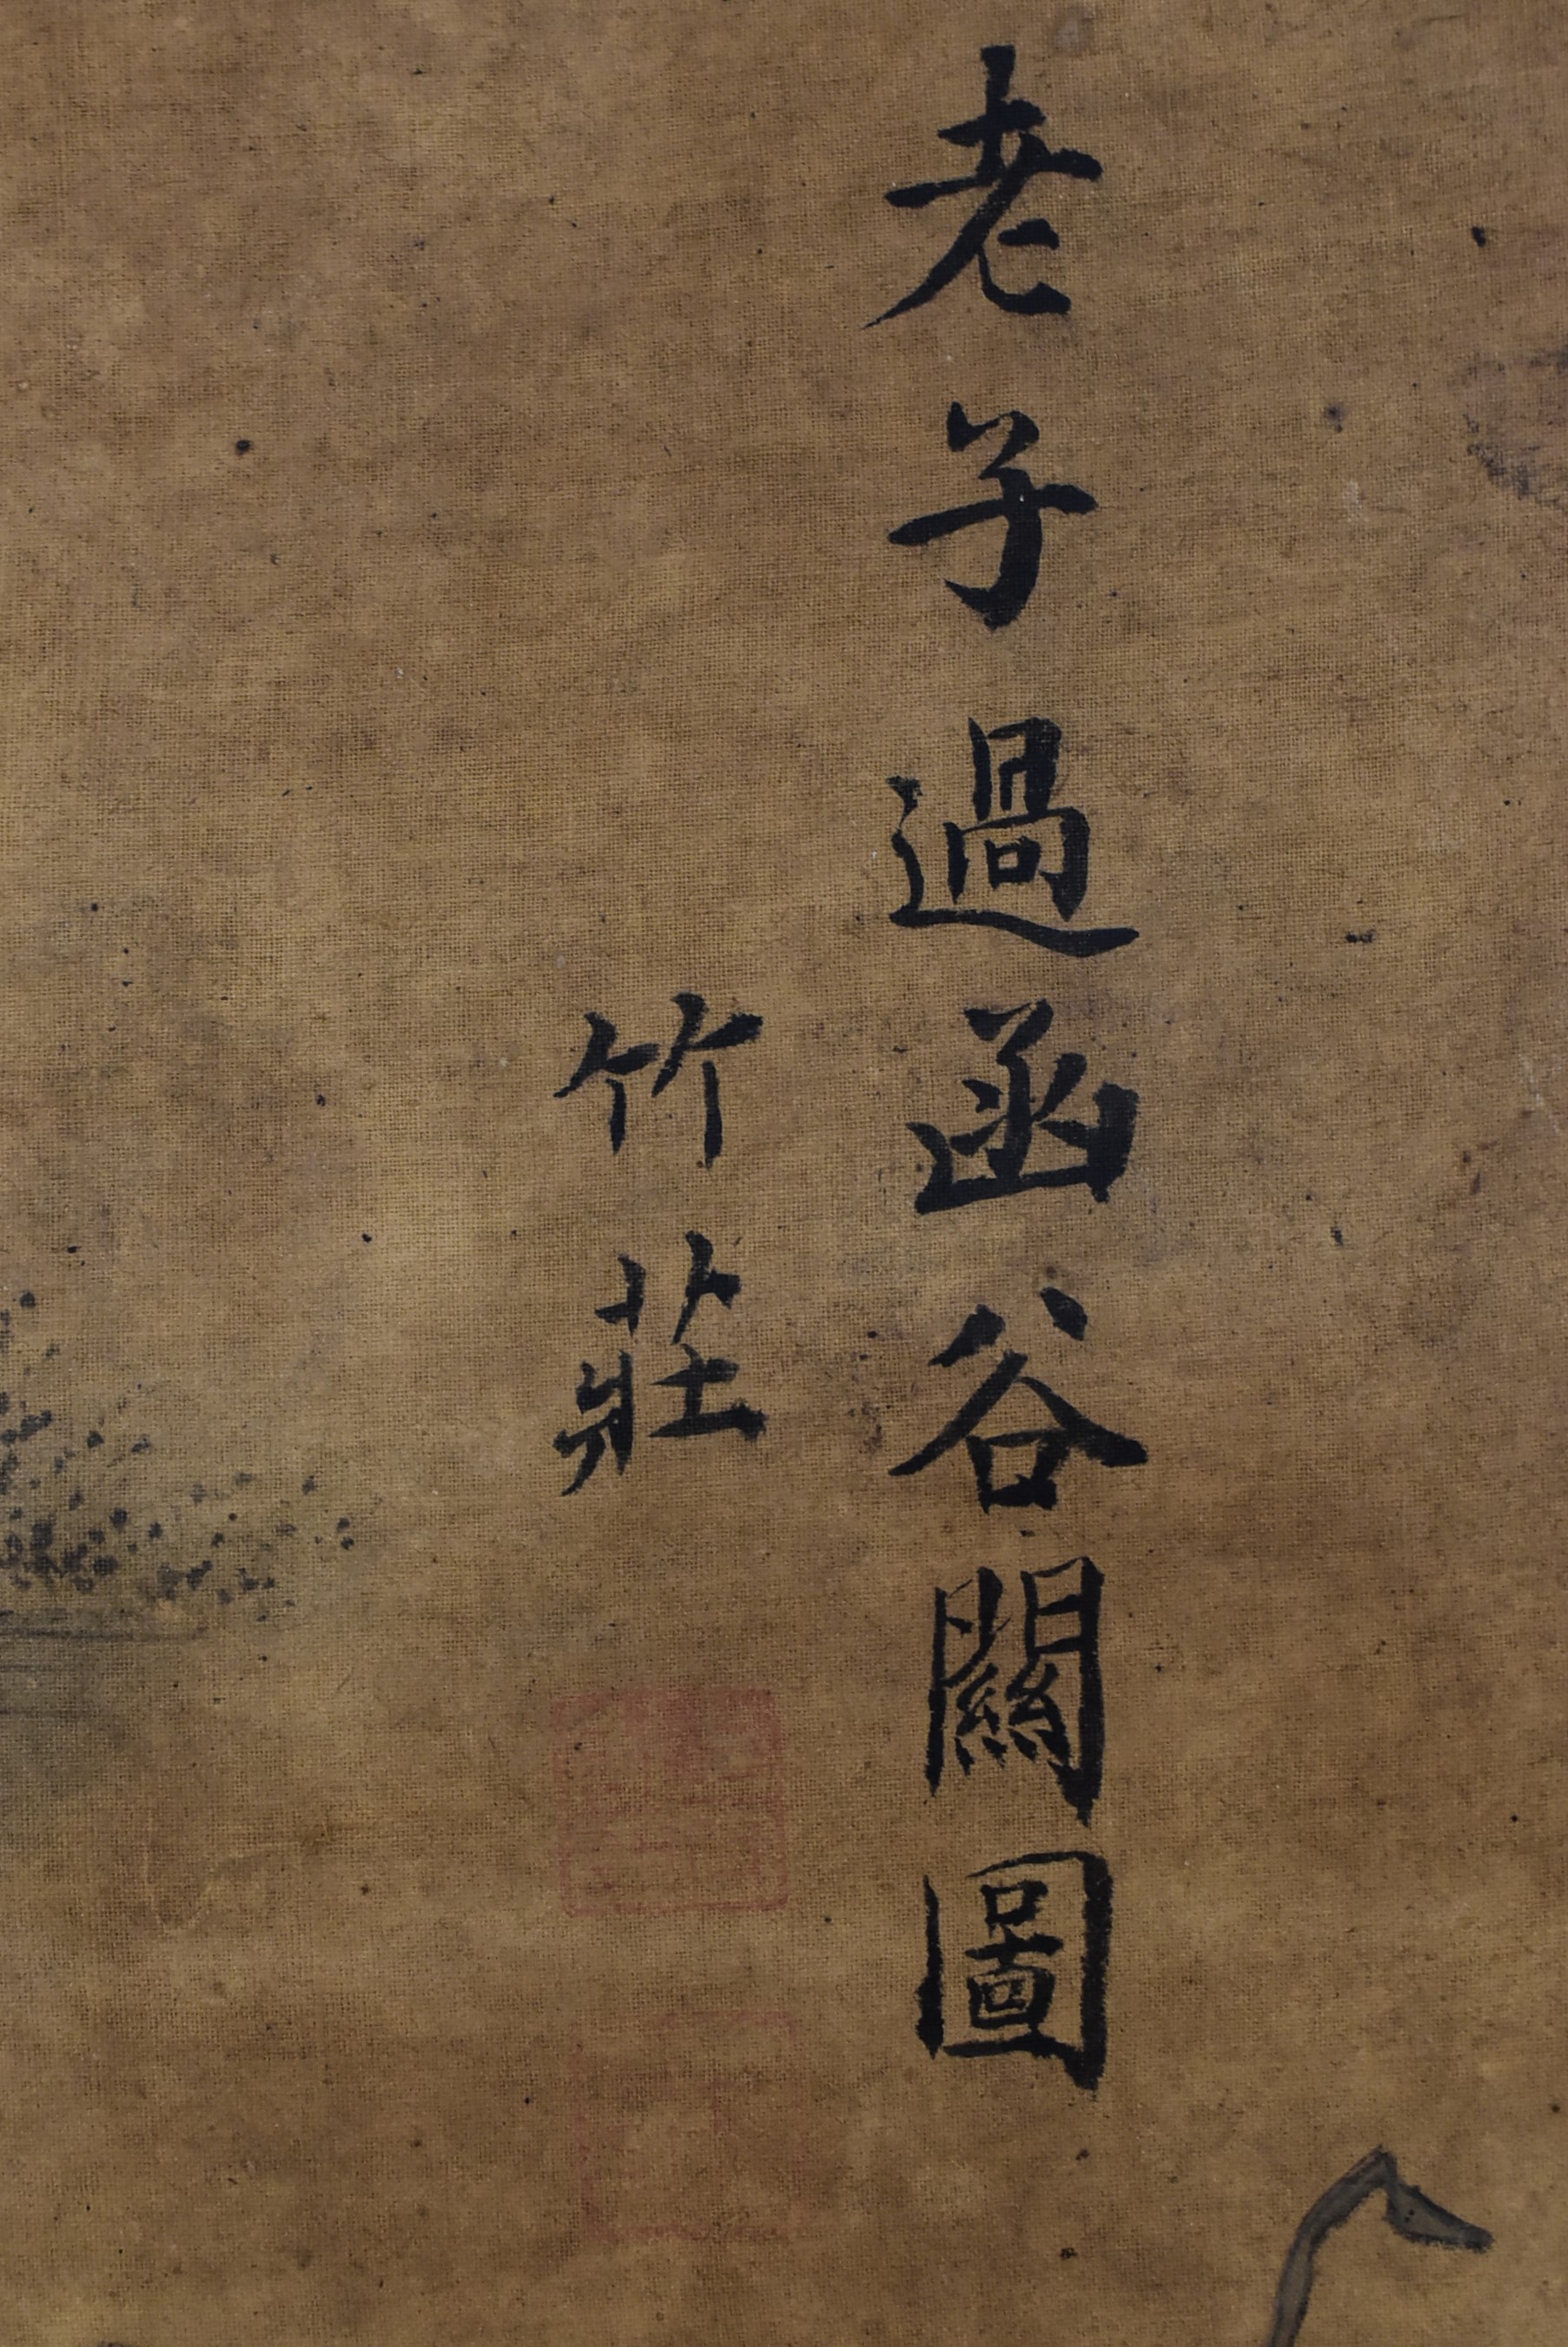 老子過函谷關圖
竹莊